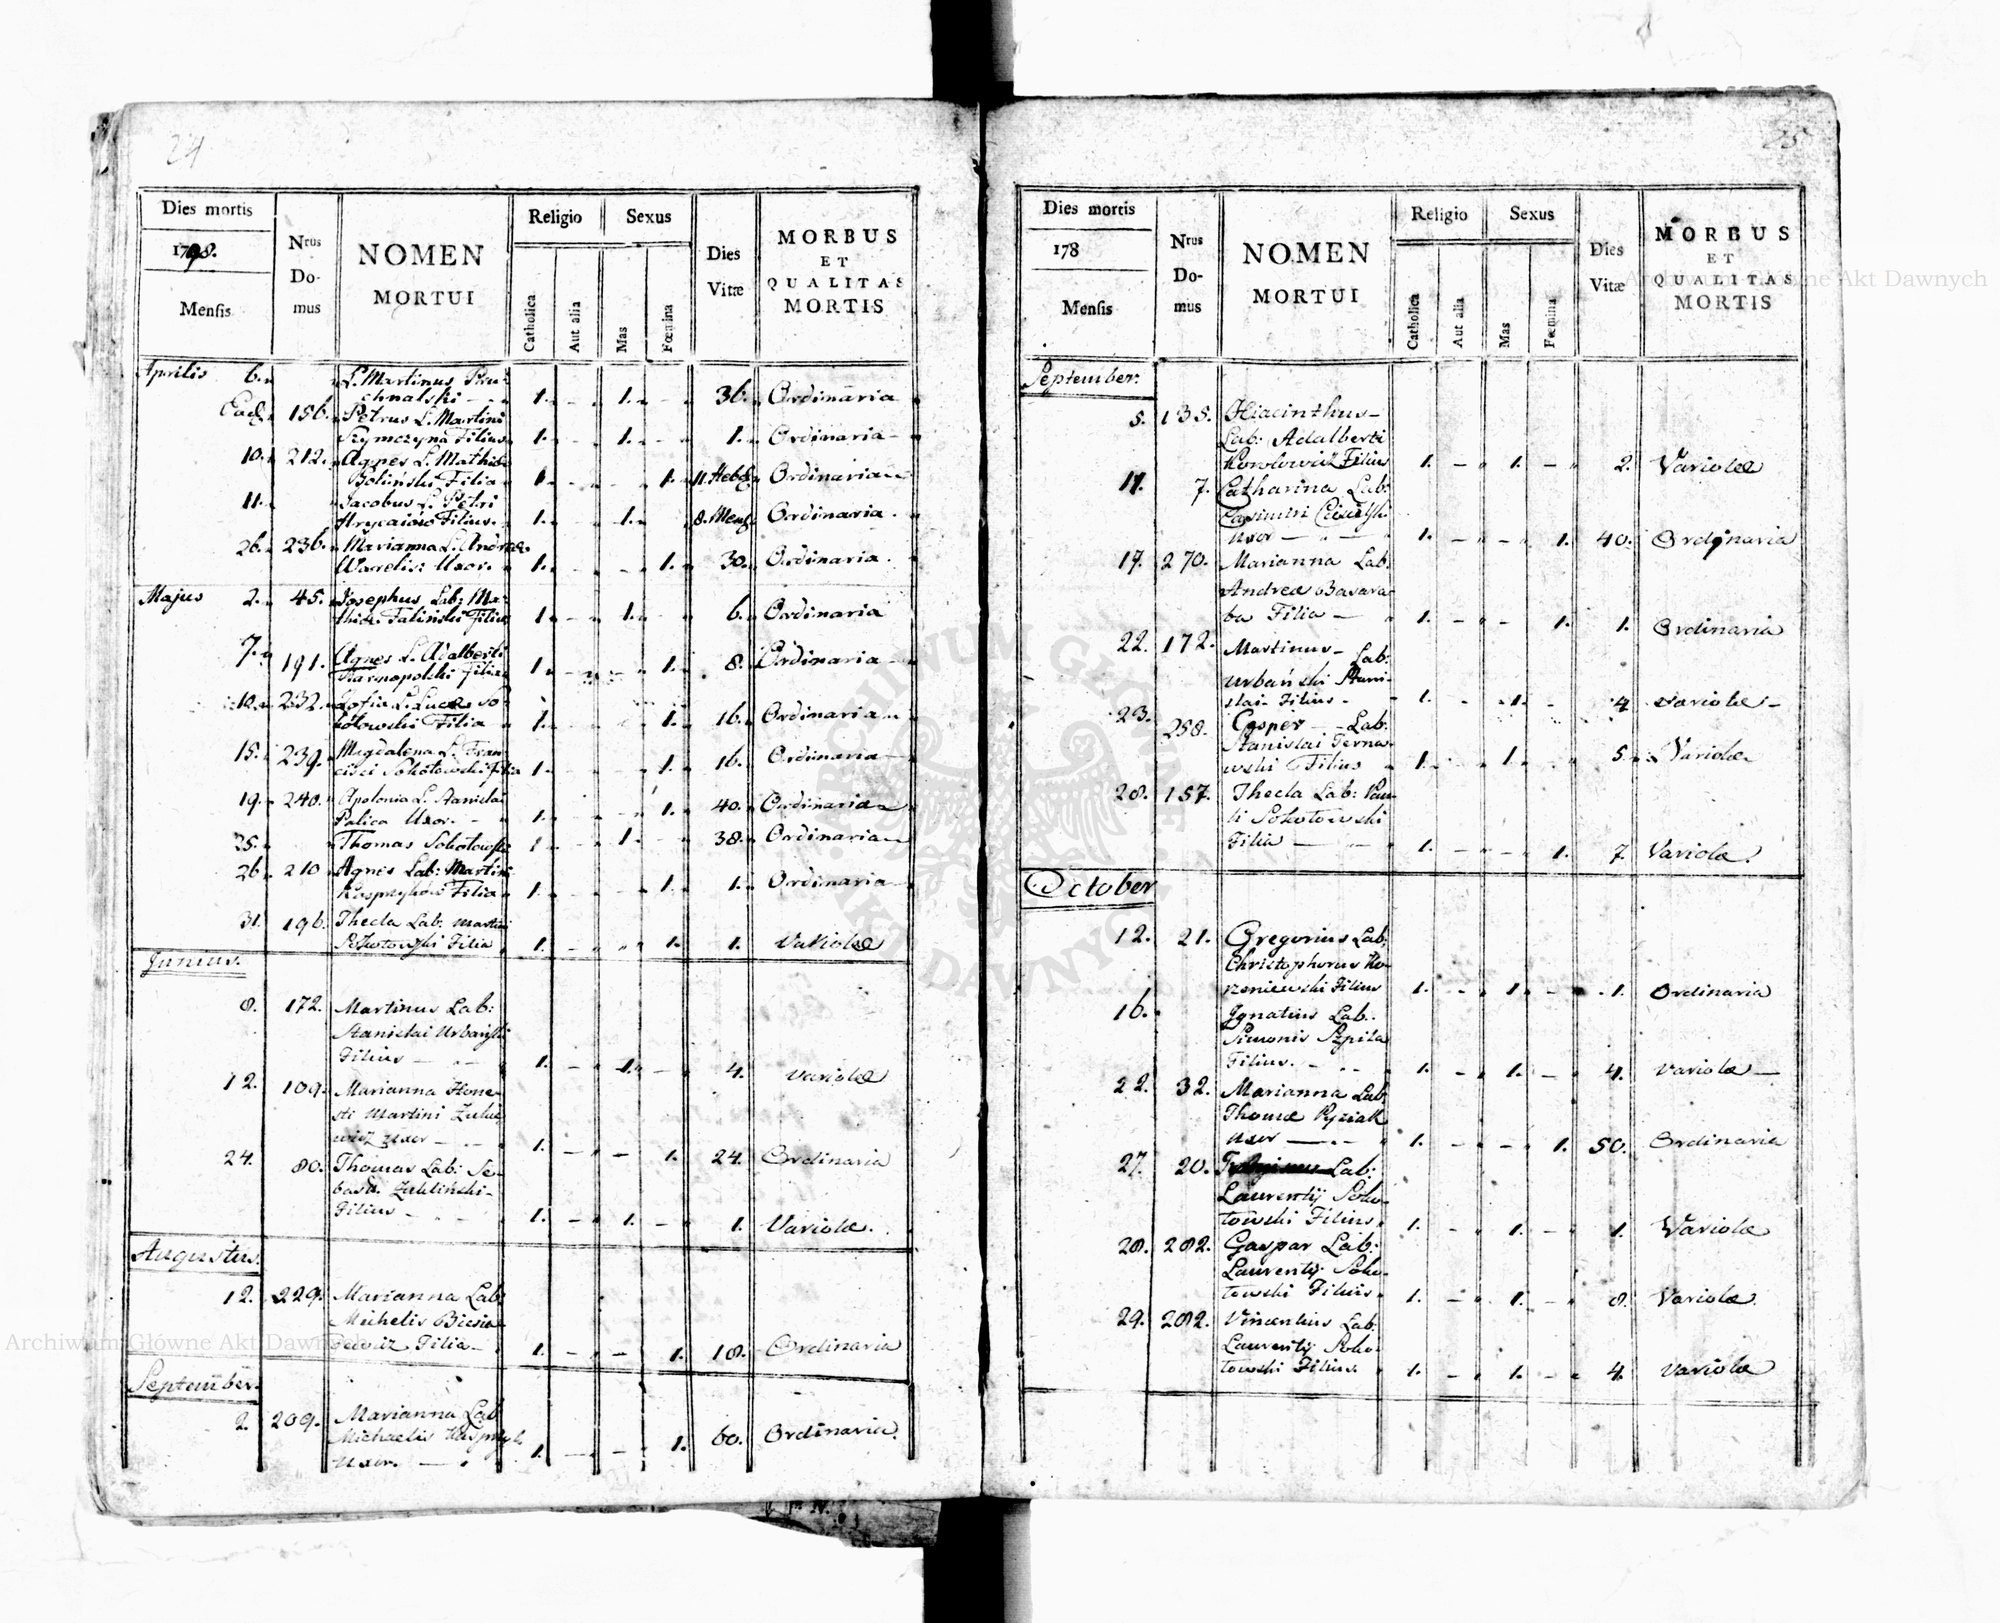 24
Dies mortis
1798.
Mensis
Nrus
Do-
mus
NOMEN
MORTUI
Religio
Sexus
Catholica
Aut alia
Mas
Fœmina
Dies
Vitæ
MORBUS
ET
QUALITAS
MORTIS
Aprilis 6. L. Martinus
1. 1. 36. Ordinaria
Ead. 156. Petrus L. Martini
Szymczyna Filius 1. 1. 1. Ordinaria
10. 212. Agnes L. Mathiæ
Boliński Filia 1. 1. 11. Hebd. Ordinaria
11. Jacobus L. Petri
Filius. 1. 1. 8. Mens. Ordinaria.
26. 236. Marianna L. Andreæ
Uxor. 1. 1. 30. Ordinaria.
Majus 2. 45. Josephus Lab: Ma-
thiæ Taliński Filius 1. 1. 6. Ordinaria
7. 191. Agnes L. Adalberti
Filia 1. 1. 8. Ordinaria
12. 232. Zofia L. Lucæ So-
kołowski Filia 1. 1. 16. Ordinaria
15. 239. Magdalena L. Fran-
cisci Sokołowski Filia 1. 1. 16. Ordinaria
19. 240. Apolonia L. Stanislai
Palica Uxor. 1. 1. 40. Ordinaria
25. Thomas Sokołowski 1. 1. 38. Ordinaria
26. 210 Agnes Lab: Martini
Filia 1. 1. 1. Ordinaria
31. 196. Thecla Lab. Martini
Filia 1. 1. 1. Variolæ
Junius.
8. 172. Martinus Lab:
Stanislai Urbański
Filius 1. 1. 4. Variolæ
12. 109. Marianna Hone-
sti Martini
Uxor 1. 1. 24. Ordinaria
24. 80. Thomas Lab: Se-
bast.
Filius 1. 1. 1. Variolæ.
Augustus.
12. 229. Marianna Lab:
Michelis
Filia 1. 1. 18. Ordinaria
September.
2. 209. Marianna Lab
Michaelis
Uxor. 1. 1. 60. Ordinaria.
25
Dies mortis
178
Mensis
Nrus
Do-
mus
NOMEN
MORTUI
Religio
Sexus
Catholica
Aut alia
Mas
Fœmina
Dies
Vitæ
MORBUS
ET
QUALITAS
MORTIS
September.
5. 135. Hiacinthus
Lab: Adalberti
Filius 1. 1. 2. Variolæ
11. 7. Catharina Lab:
Casimiri
Uxor 1. 1. 40. Ordinaria
17. 270. Marianna Lab.
Andreæ Basara-
ba Filia 1. 1. 1. Ordinaria
22. 172. Martinus Lab:
Urbański Stani-
slai Filius 1. 1. 4 Variolæ
23. 258. Casper Lab.
Stanislai Terna-
wski Filius 1. 1. 5. Variolæ
28. 157. Thecla Lab: Pau-
li Sokołowski
Filia 1. 1. 7. Variolæ.
October
12. 21. Gregorius Lab:
Christophorus Ko-
rzeniewski Filius 1. 1. 1. Ordinaria
16. Ignatius Lab:
Simonis Szpila
Filius. 1. 1. 4. Variolæ
22. 32. Marianna Lab:
Thomæ
Uxor 1. 1. 50. Ordinaria
27. 20. Lab:
Laurentij Soko-
łowski Filius 1. 1. 1. Variolæ
28. 282. Gaspar Lab:
Laurentij Soko-
łowski Filius 1. 1. 8. Variolæ.
29. 282. Vincentius Lab.
Laurentij Soko-
łowski Filius. 1. 1. 4. Variolæ
Archiwum Główne Akt Dawnych
Archiwum Główne Akt Dawnych
ARCHIWUM GŁÓWNE AKT DAWNYCH